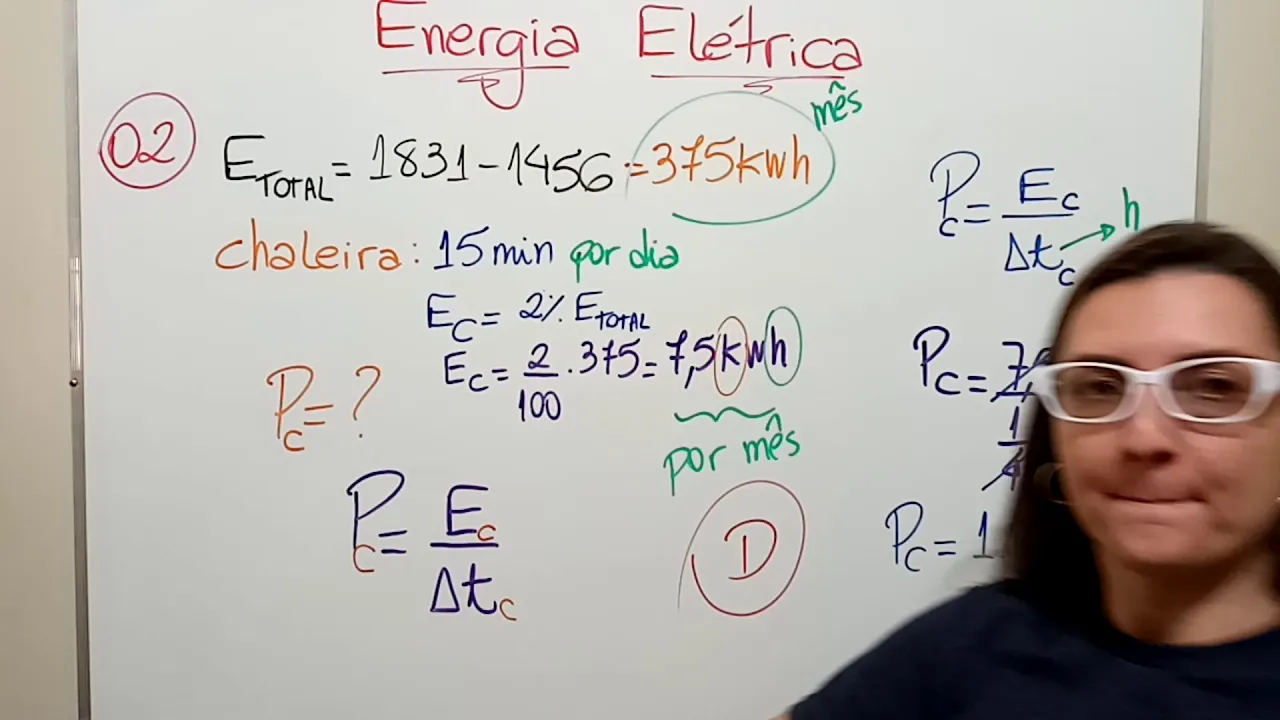 Energia Elétrica
02
E TOTAL = 1831 - 1456 = 375 kwh mês
chaleira: 15 min por dia
Ec = 2% E TOTAL
Ec = 2/100 . 375 = 7,5 kwh
por mês
Pc = ?
Pc = Ec/Δtc
D
Pc = Ec/Δtc → h
Pc = 7,
1
Pc = 1